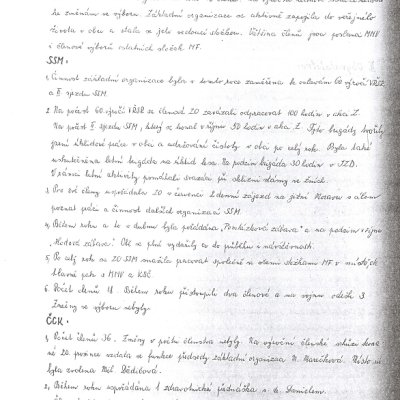 ke změnám ve výboru. Základní organizace se aktivně zapojila do veřejného
života v obci a stala se jeho vedoucí složkou. Většina členů jsou poslanci MNV
i členové výborů ostatních složek NF.
SSM:
1. Činnost základní organizace byla v tomto roce zaměřena k oslavám 60. výročí VŘSR
a II. sjezdu SSM.
2. Na počest 60. výročí VŘSR se členové ZO zavázali odpracovat 100 hodin v akci Z.
Na počest II. sjezdu SSM, který se konal v říjnu 50 hodin v akci Z. Tyto brigády tvořily
jarní úklidové práce v obci a udržování čistoty v obci po celý rok. Byla také
uskutečněna letní brigáda na úklid lesa. Na podzim brigáda 30 hodin v JZD.
V rámci letní aktivity pomáhali svazáci při sklizni slámy ve žních.
3. Pro své členy uspořádala ZO v červenci 2 denní zájezd na jižní Moravu s cílem
poznat práci a činnost dalších organizací SSM.
4. Během roku a to v dubnu byla pořádána „Pomlázková zábava" a na podzim v říjnu
„Hodová zábava". Obě se plně vydařily co do průběhu i návštěvnosti.
5. Po celý rok se ZO SSM snažila pracovat společně se všemi složkami NF v místě,
hlavně pak s MNV a KSČ.
6. Počet členů 18. Během roku přistoupili dva členové a na vojnu odešli 3
Změny ve výboru nebyly.
ČČK:
1. Počet členů 36. Změny v počtu členstva nebyly. Na výroční členské schůzi konané
20. prosince vzdala se funkce předsedy základní organizace M. Marečková. Místo ní
byla zvolena Mil. Dědičová.
2. Během roku uspořádána 1 zdravotnická přednáška s